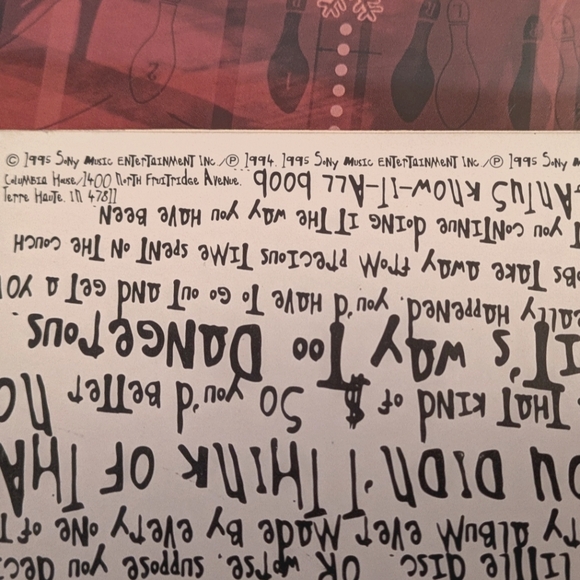 © 1995 Sony Music Entertainment Inc./℗ 1994, 1995 Sony Music Entertainment Inc./℗ 1995 Sony M
Columbia House, 1400 North Fruitridge Avenue,
Terre Haute, IN 47811
little disc. Or worse, suppose you dec
ry album ever made by every one of t
ou didn't think of tha
that kind of $ So you'd better no
It's way too dangerous.
eally happened. you'd have to go out and get a
obs take away from precious time spent on the couch
t you continue doing it the way you have been
-antus know-it-all boob